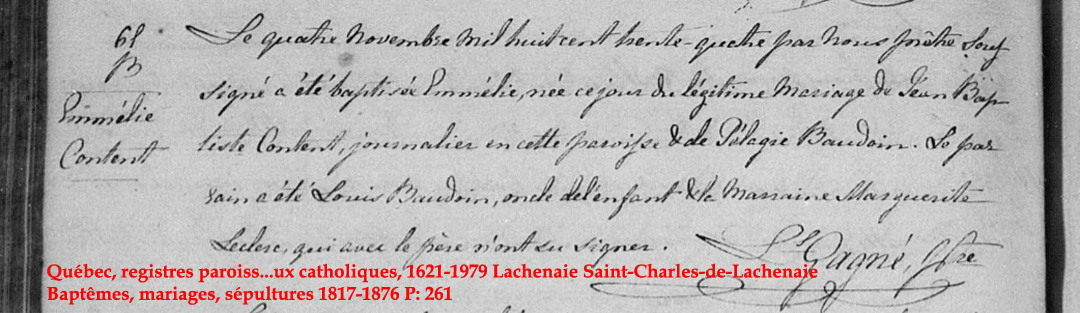 61
B
Emmélie
Content
Le quatre Novembre mil huit cent trente-quatre par nous prêtre Sous
signé a été baptisée Emmélie, née ce jour du légitime Mariage de Jean Bap
tiste Content, journalier en cette paroisse & de Pélagie Baudoin. Le par
rain a été Louis Baudoin, oncle de l'enfant & la Marraine Marguerite
Leclerc, qui avec le père n'ont su signer.
Gagné, Ptre
Québec, registres paroiss...ux catholiques, 1621-1979 Lachenaie Saint-Charles-de-Lachenaie
Baptêmes, mariages, sépultures 1817-1876 P: 261